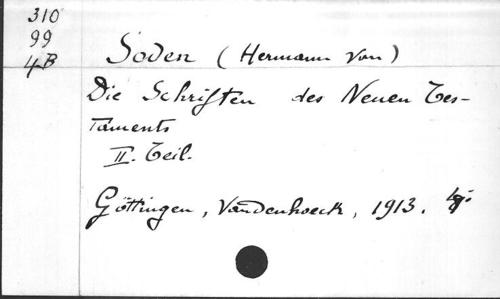 310
99
4B
Soden (Hermann von)
Die Schriften des Neuen Tes-
taments
II. Teil.
Göttingen, Vandenhoeck, 1913.